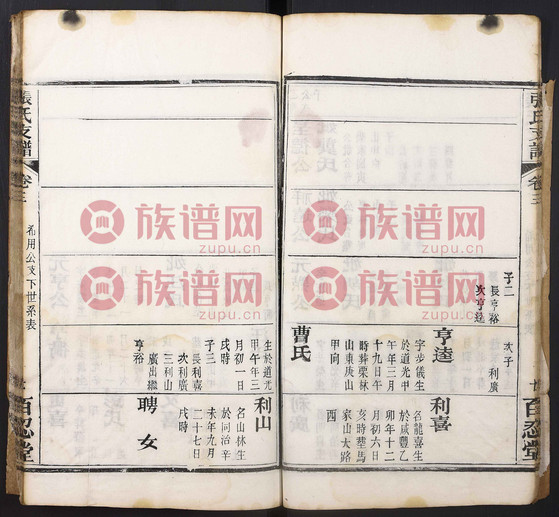 張氏支譜
卷三
子二
長亨裕
次亨達
次子
利廣
亨達
字步儀生
於道光甲
午年三月
十九日午
時葬栗林
山東庚山
甲向
曹氏
利喜
名龍喜生
於咸豐乙
卯年十二
月初六日
亥時塟馬
家山大路
西
百忍堂
生於道光
甲午年三
月初一日
戌時
子三
長利喜
次利廣
三利山
廣出繼
亨裕
利山
名山林生
於同治辛
未年九月
二十七日
戌時
聘女
張氏支譜
卷三
希用公支下世系表
百忍堂
族谱网
zupu.cn
族谱网
zupu.cn
族谱网
zupu.cn
族谱网
zupu.cn